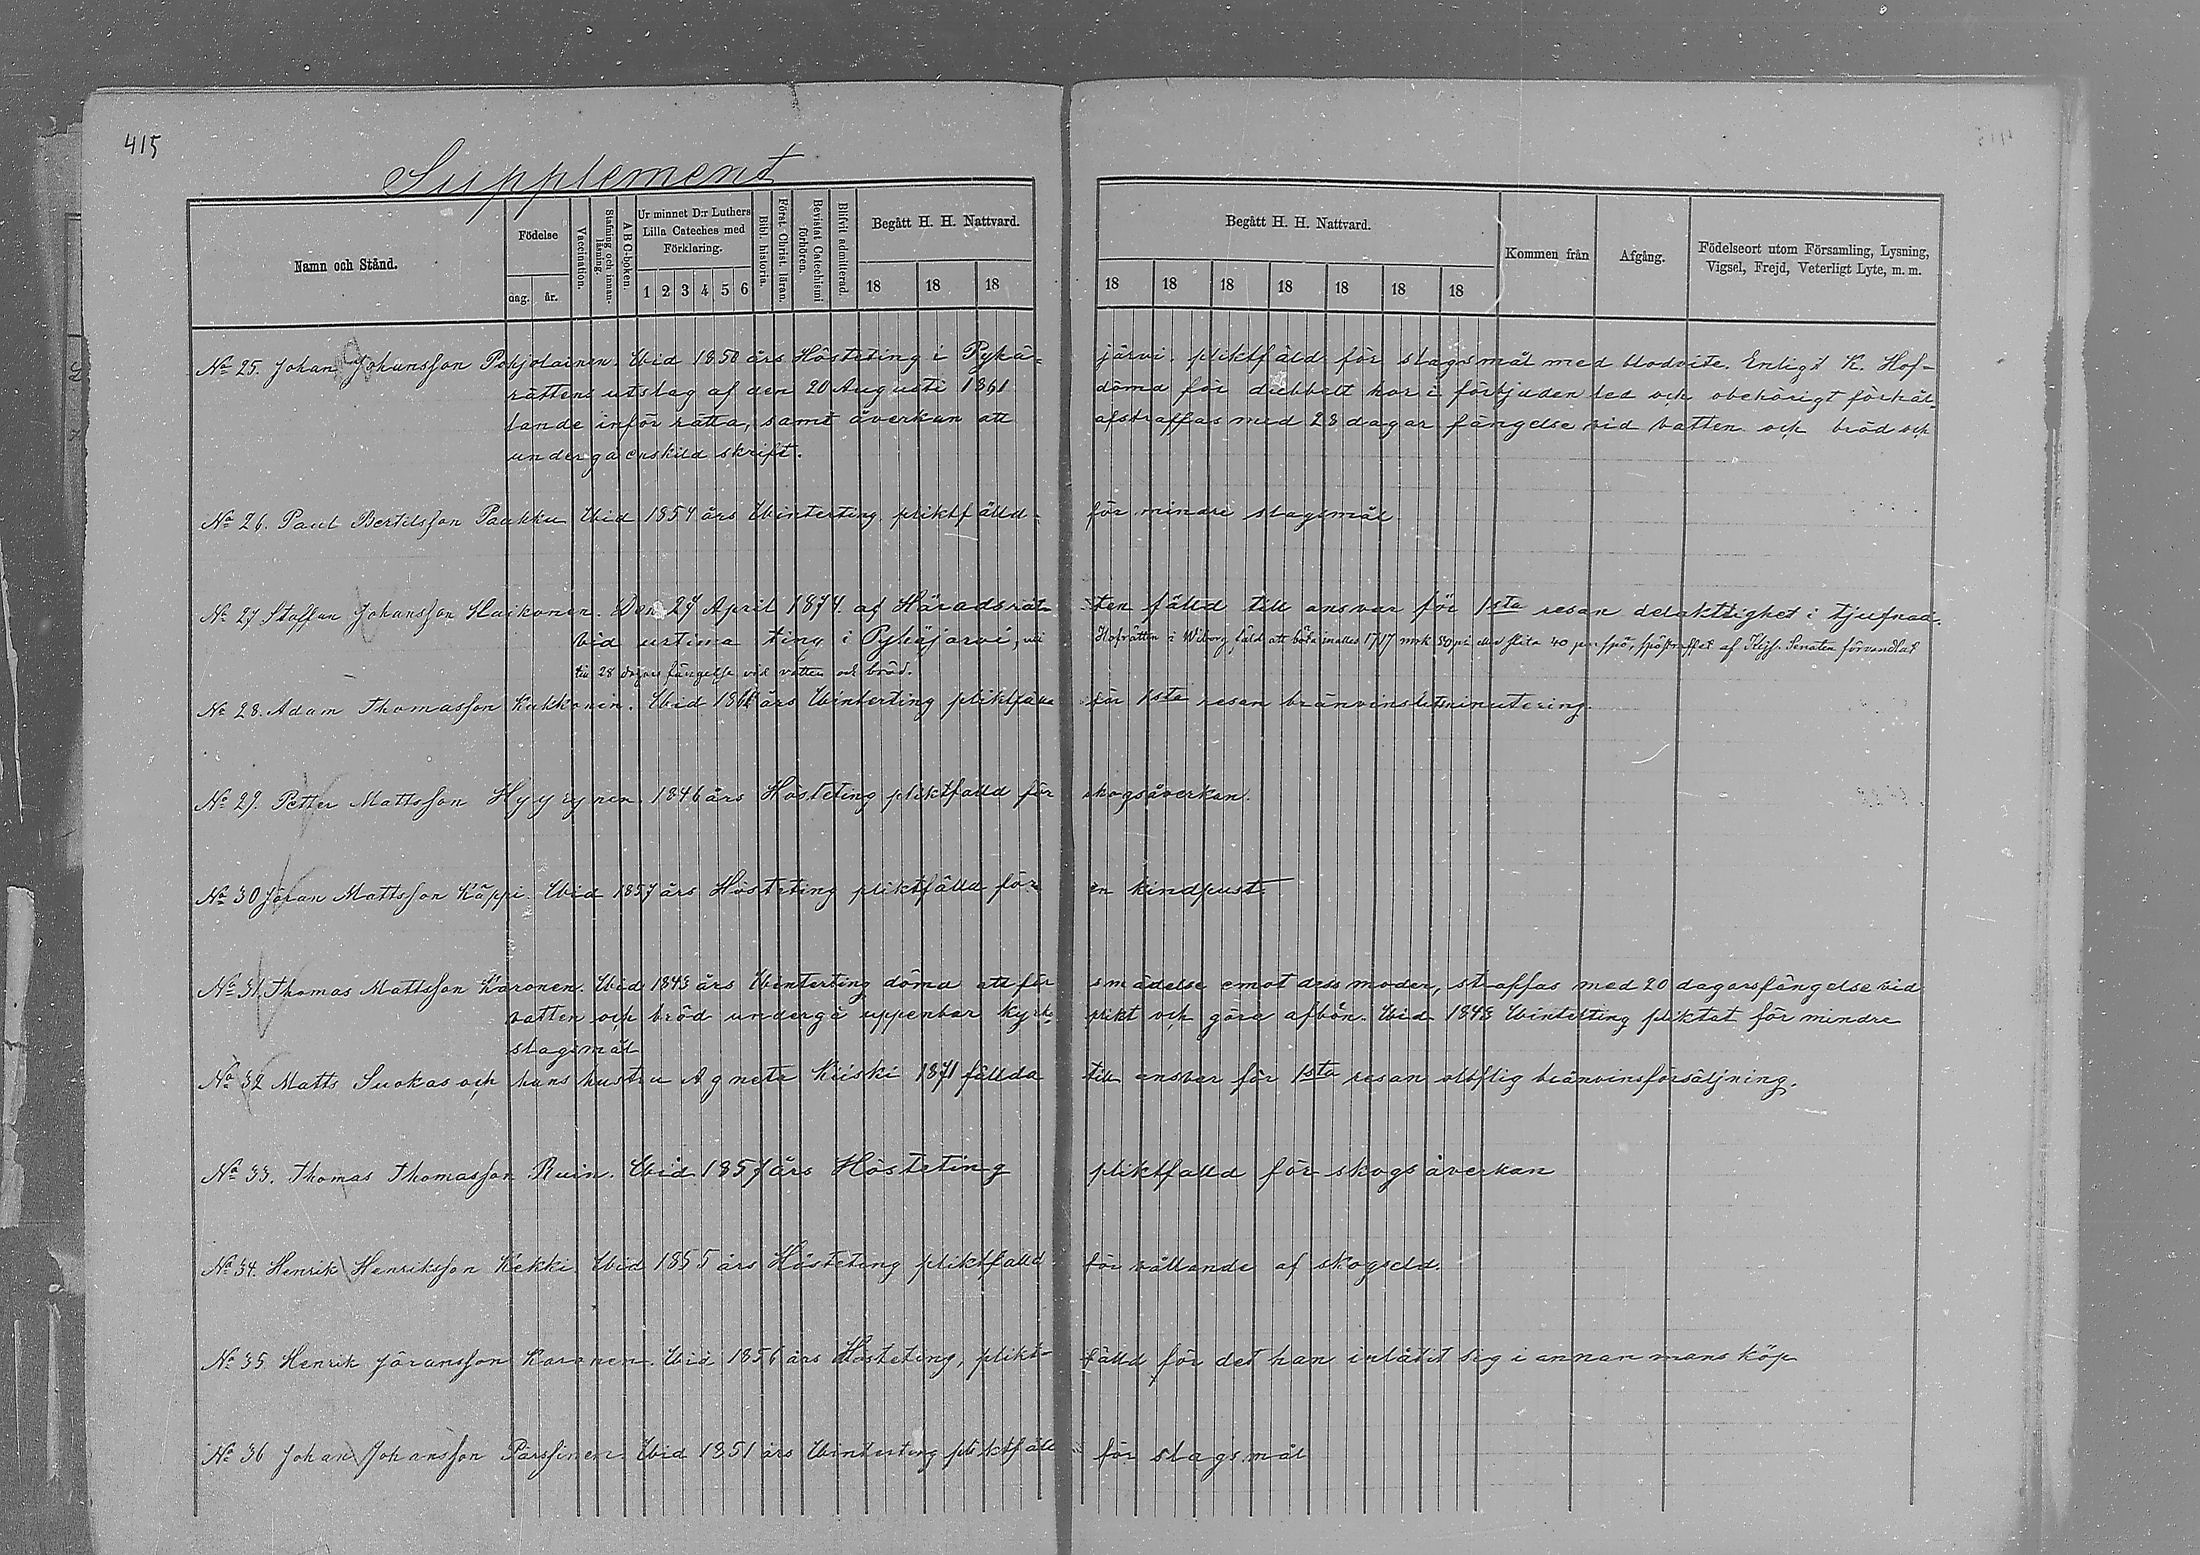 415
Supplement
Namn och Stånd.
Födelse
dag.
år.
Vaccination.
Stafning och innanläsning.
A B C-boken.
Ur minnet D:r Luthers Lilla Cateches med Förklaring.
1 2 3 4 5 6
Bibl. historia.
Förat. Christ. läran.
Bevistat Catechismi förhören.
Blifvit admitterad.
Begått H. H. Nattvard.
18 18 18
Begått H. H. Nattvard.
18 18 18 18 18 18 18
Kommen från
Afgång.
Födelseort utom Församling, Lysning,
Vigsel, Frejd, Veterligt Lyte, m. m.
No 25. Johan Johansson Pohjolainen. Wid 1850 års Hösteting i Pyhä= järvi. pliktfäld för slagsmål med blodvite. Enligt K. Hof=
rättens utslag af den 20 Augusti 1861 dömd för dubbelt hor i förbjuden led och obehörigt förhål=
lande inför rätta, samt åverkan att afstraffas med 28 dagar fängelse vid vatten och bröd och
undergå enskild skrift.
No 26. Paul Bertilsson Paukku Wid 1854 års Winterting pliktfälld för mindre slagsmål
No 27 Staffan Johansson Haikonen. Den 27 April 1874. af Häradsrät= ten fälld till ansvar för 1sta resan delaktighet i tjufnad.
vid urtima ting i Pyhäjärvi, Hofrätten i Wiborg, fäld att böta inalles 1717 mrk 50 pi eller slita 40 par spö, spöstraffet af Kejs. Senaten förvandlat
till 28 dagars fängelse vid vatten och bröd.
No 28. Adam Thomasson Kukkonen. Wid 1861 års Winterting pliktfälld för 1sta resan bränvinsutminutering.
No 29. Petter Mattsson Hyyrynen. 1846 års Hösteting pliktfälld för skogsåverkan.
No 30 Göran Mattsson Käppi. Wid 1857 års Hösteting pliktfälld för en kindpust.
No 31. Thomas Mattsson Karonen. Wid 1843 års Winterting dömd att för smädelse emot dess moder, straffas med 20 dagars fängelse vid
vatten och bröd undergå uppenbar kyrk= plikt och göra afbön. Wid 1843 Winterting pliktat för mindre
slagsmål
No 32 Matts Suokas och hans hustru Agneta Kiiski 1871 fällda till ansvar för 1sta resan oloflig bränvinsförsäljning.
No 33. Thomas Thomasson Ruin. Wid 1857 års Hösteting pliktfälld för skogsåverkan
No 34. Henrik Henriksson Kekki Wid 1855 års Hösteting pliktfälld för vållande af skogseld.
No 35 Henrik Göransson Karonen. Wid 1856 års Hösteting, plikt= fälld för det han inlåtit sig i annan mans köp
No 36 Johan Johansson Pärssinen. Wid 1851 års Winterting pliktfälld för slagsmål